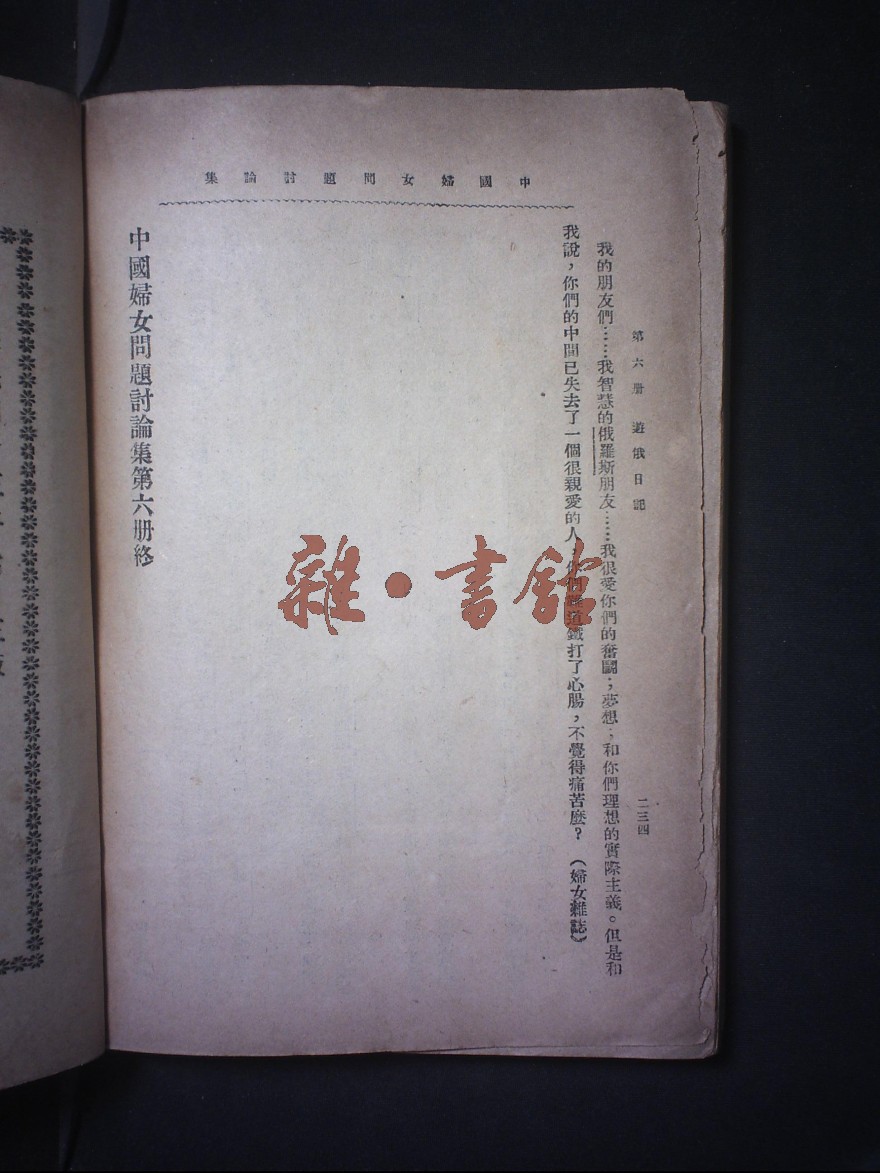 中國婦女問題討論集
第六册 遊俄日記 二三四
我的朋友們……我智慧的俄羅斯朋友……我很愛你們的奮鬭；夢想；和你們理想的實際主義。但是和
我說，你們的中間已失去了一個很親愛的人，你們難道鐵打了心腸，不覺得痛苦麼？（婦女雜誌）
中國婦女問題討論集第六册終
雜·書館